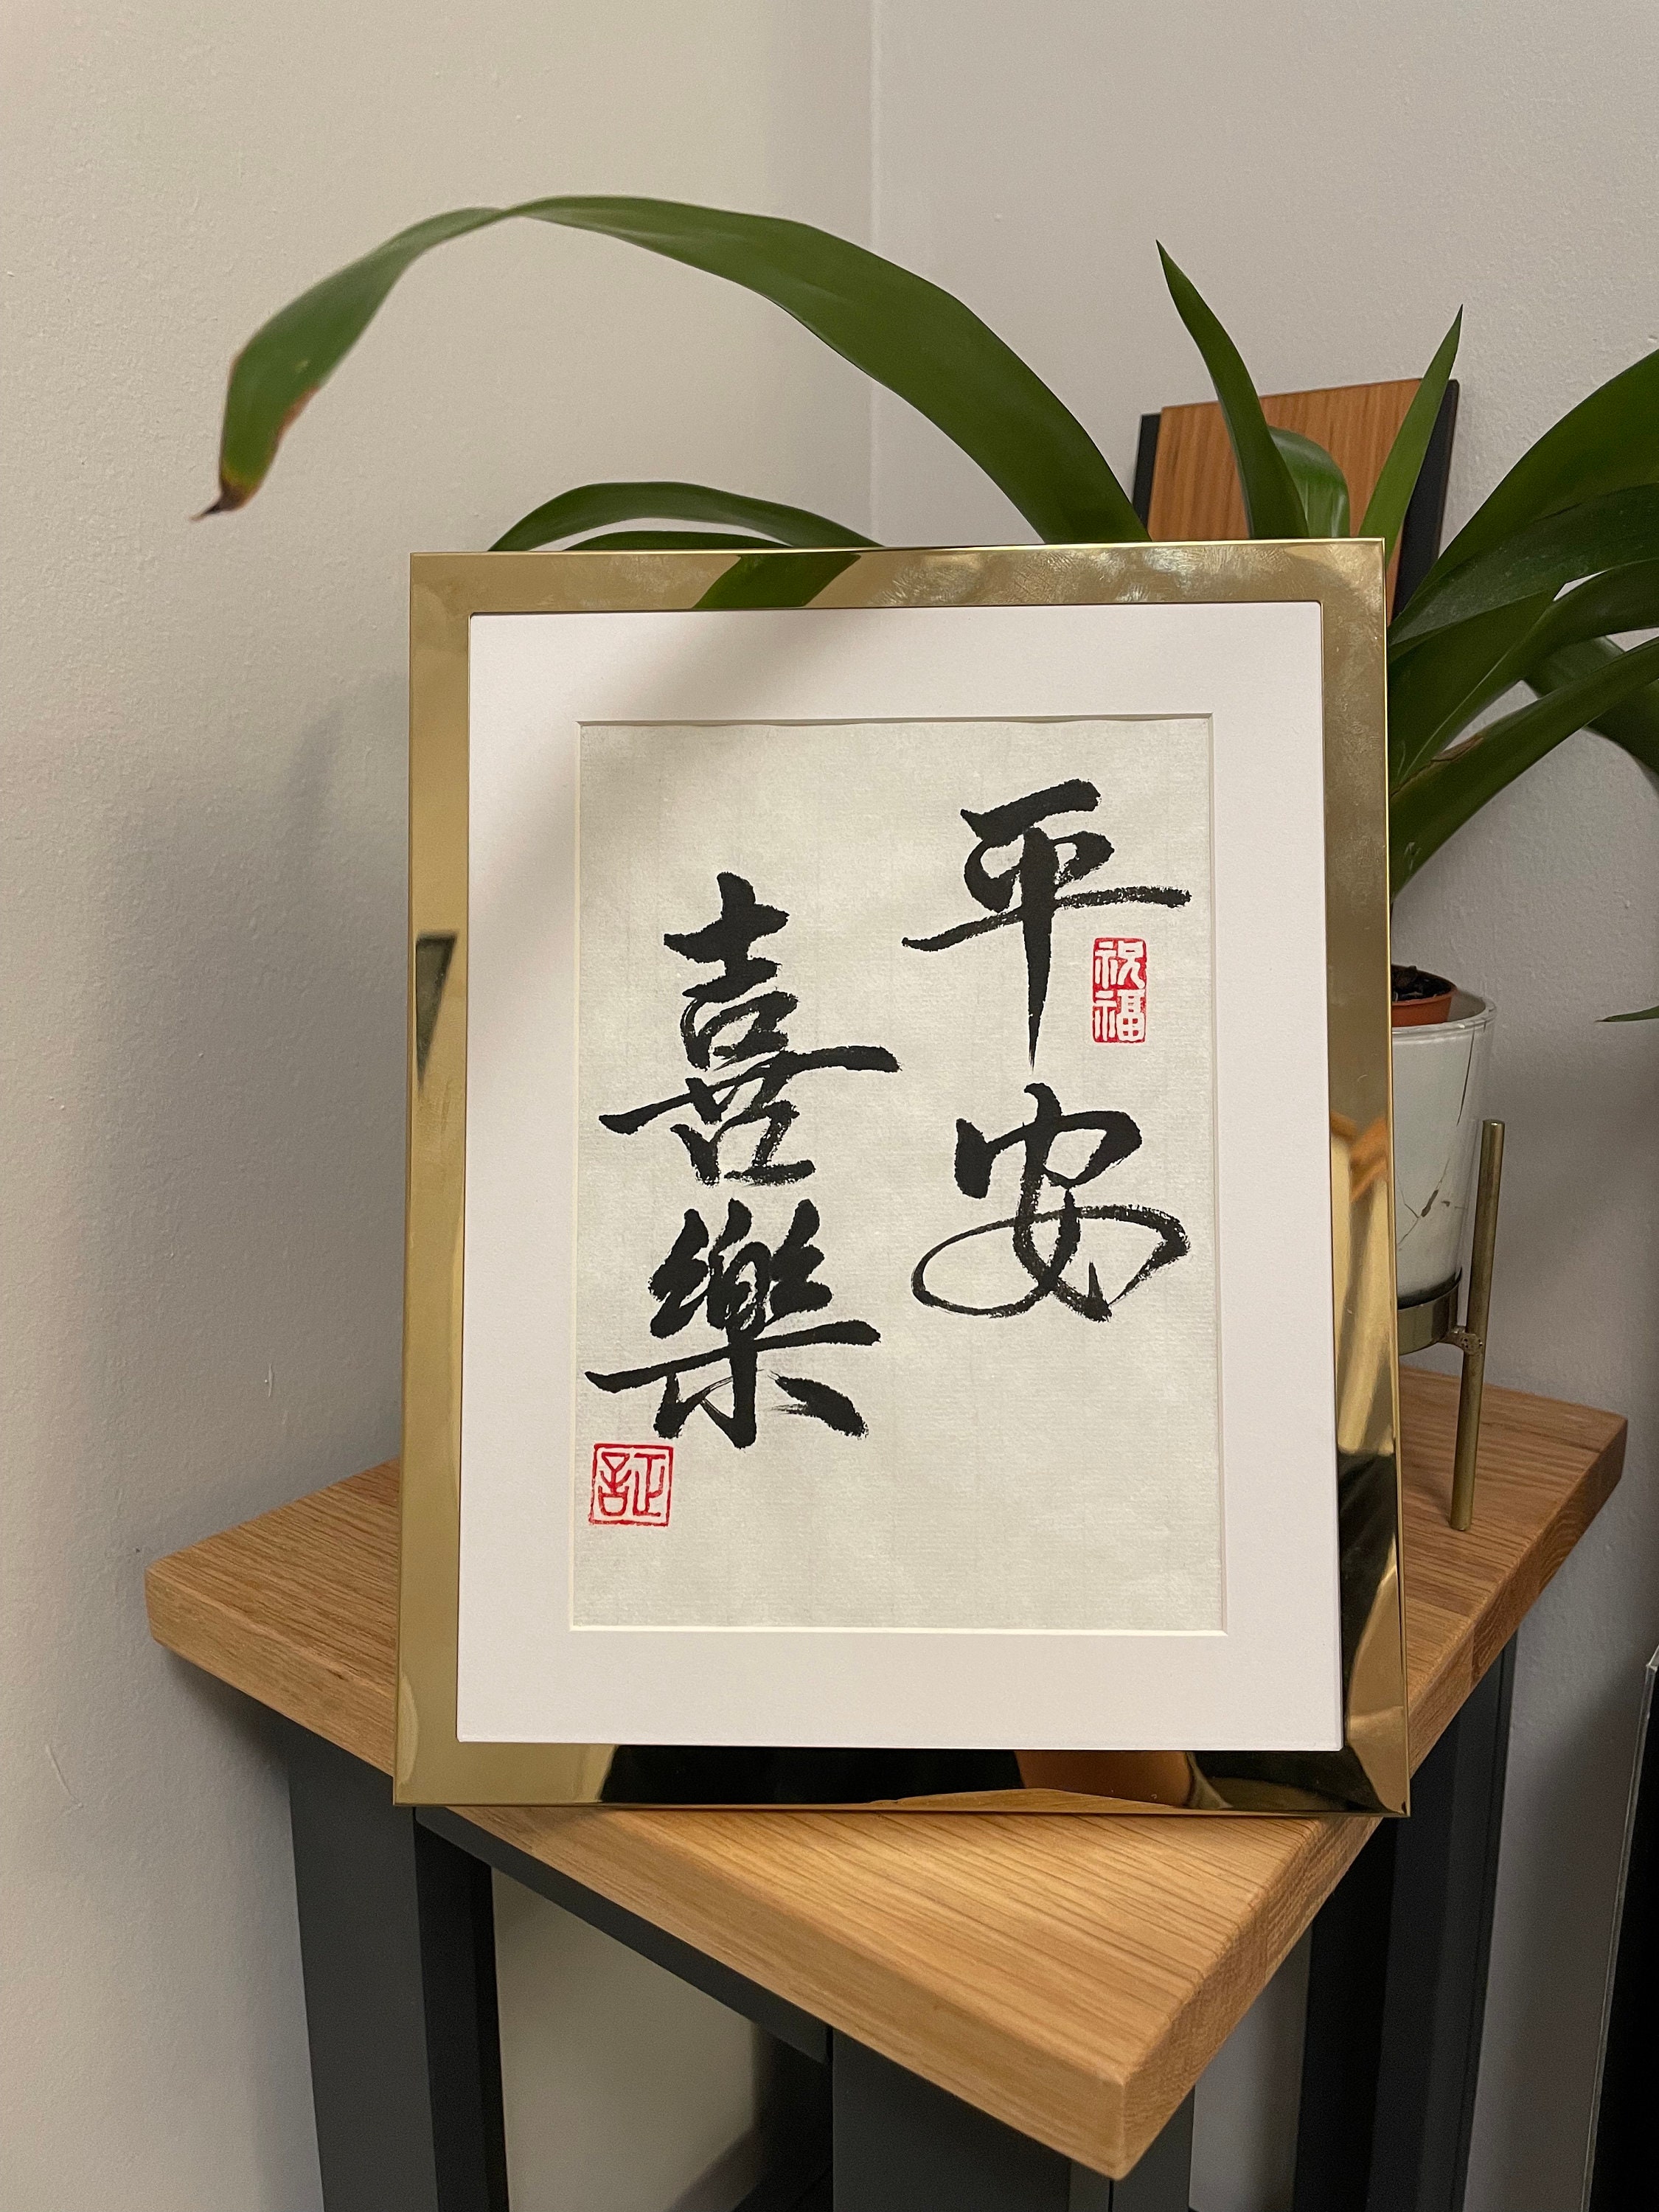 平安
祝福
喜樂
証